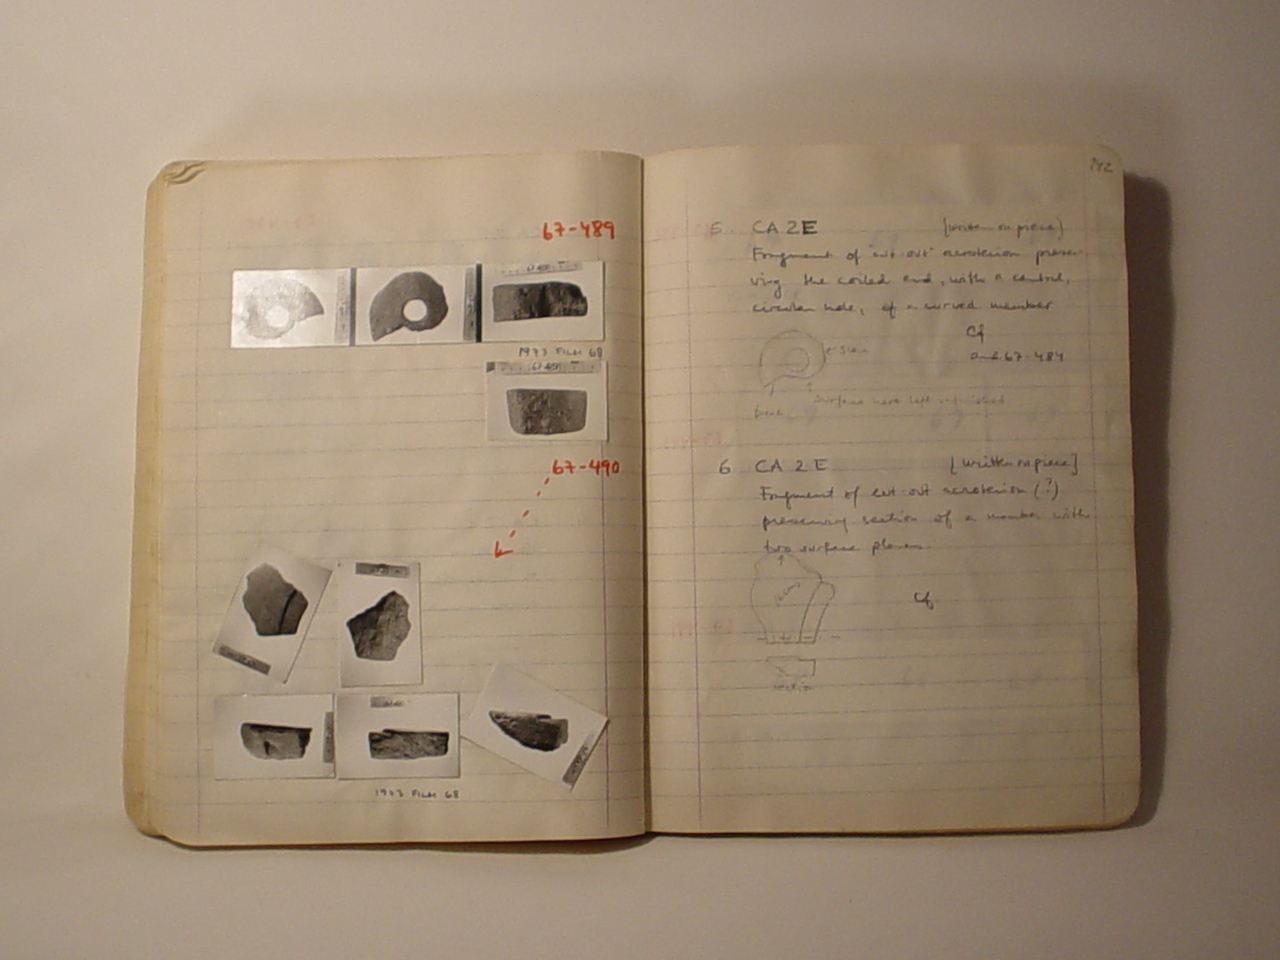 67-489
1973 FILM 68
67-490
1973 FILM 68
5. CA 2E [written on piece]
Fragment of "cut-out" acroterion preser-
ving the coiled end, with a central,
circular hole, of a curved member
Cf
and 67-484
surface here left unfinished
6 CA 2E. [written on piece]
Fragment of cut-out acroterion (?)
preserving section of a member with
two surface planes.
Cf
section